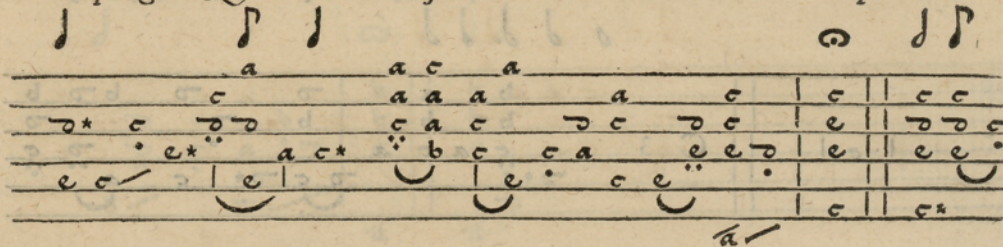 a a c a
c a a a a c c c c
d* c d d c a c d c d c e d d c
e* a c* b c c a e e d e e e
e c e e c e
c c*
a